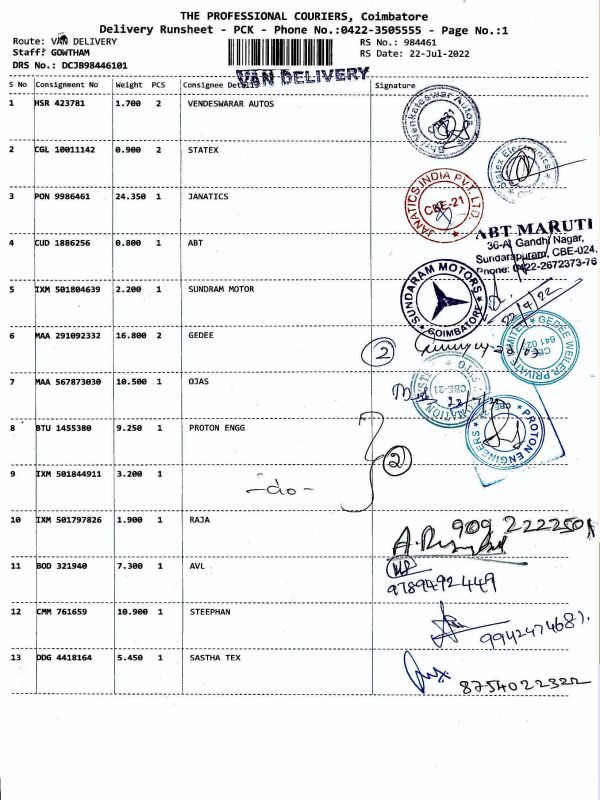 THE PROFESSIONAL COURIERS, Coimbatore
Delivery Runsheet - PCK - Phone No.:0422-3505555 - Page No.:1
Route: VAN DELIVERY
RS No.: 984461
Staff: GOWTHAM
RS Date: 22-Jul-2022
DRS No.: DCJB98446101
VAN DELIVERY
S No Consignment No Weight PCS Consignee Details Signature
1 HSR 423781 1.700 2 VENDESWARAR AUTOS
2 CGL 10011142 0.900 2 STATEX
3 PON 9986461 24.350 1 JANATICS
JANATICS INDIA PVT. LTD.
CBE-21
4 CUD 1886256 0.800 1 ABT
ABT MARUTI
36-A, Gandhi Nagar,
Sundarapuram, CBE-024.
Phone: 0422-2672373-76
5 IXM 501804639 2.200 1 SUNDRAM MOTOR
SUNDARAM MOTORS
COIMBATORE
6 MAA 291092332 16.800 2 GEDEE
2
GEDEE WEILER PRIVATE LIMITED
7 MAA 567873030 10.500 1 OJAS
CBE-21
8 BTU 1455380 9.250 1 PROTON ENGG
PROTON ENGINEERS
2
9 IXM 501844911 3.200 1
-do-
10 IXM 501797826 1.900 1 RAJA
909 2222501
11 BOD 321940 7.300 1 AVL
9789492449
12 CMM 761659 10.900 1 STEEPHAN
13 DDG 4418164 5.450 1 SASTHA TEX
8754022322